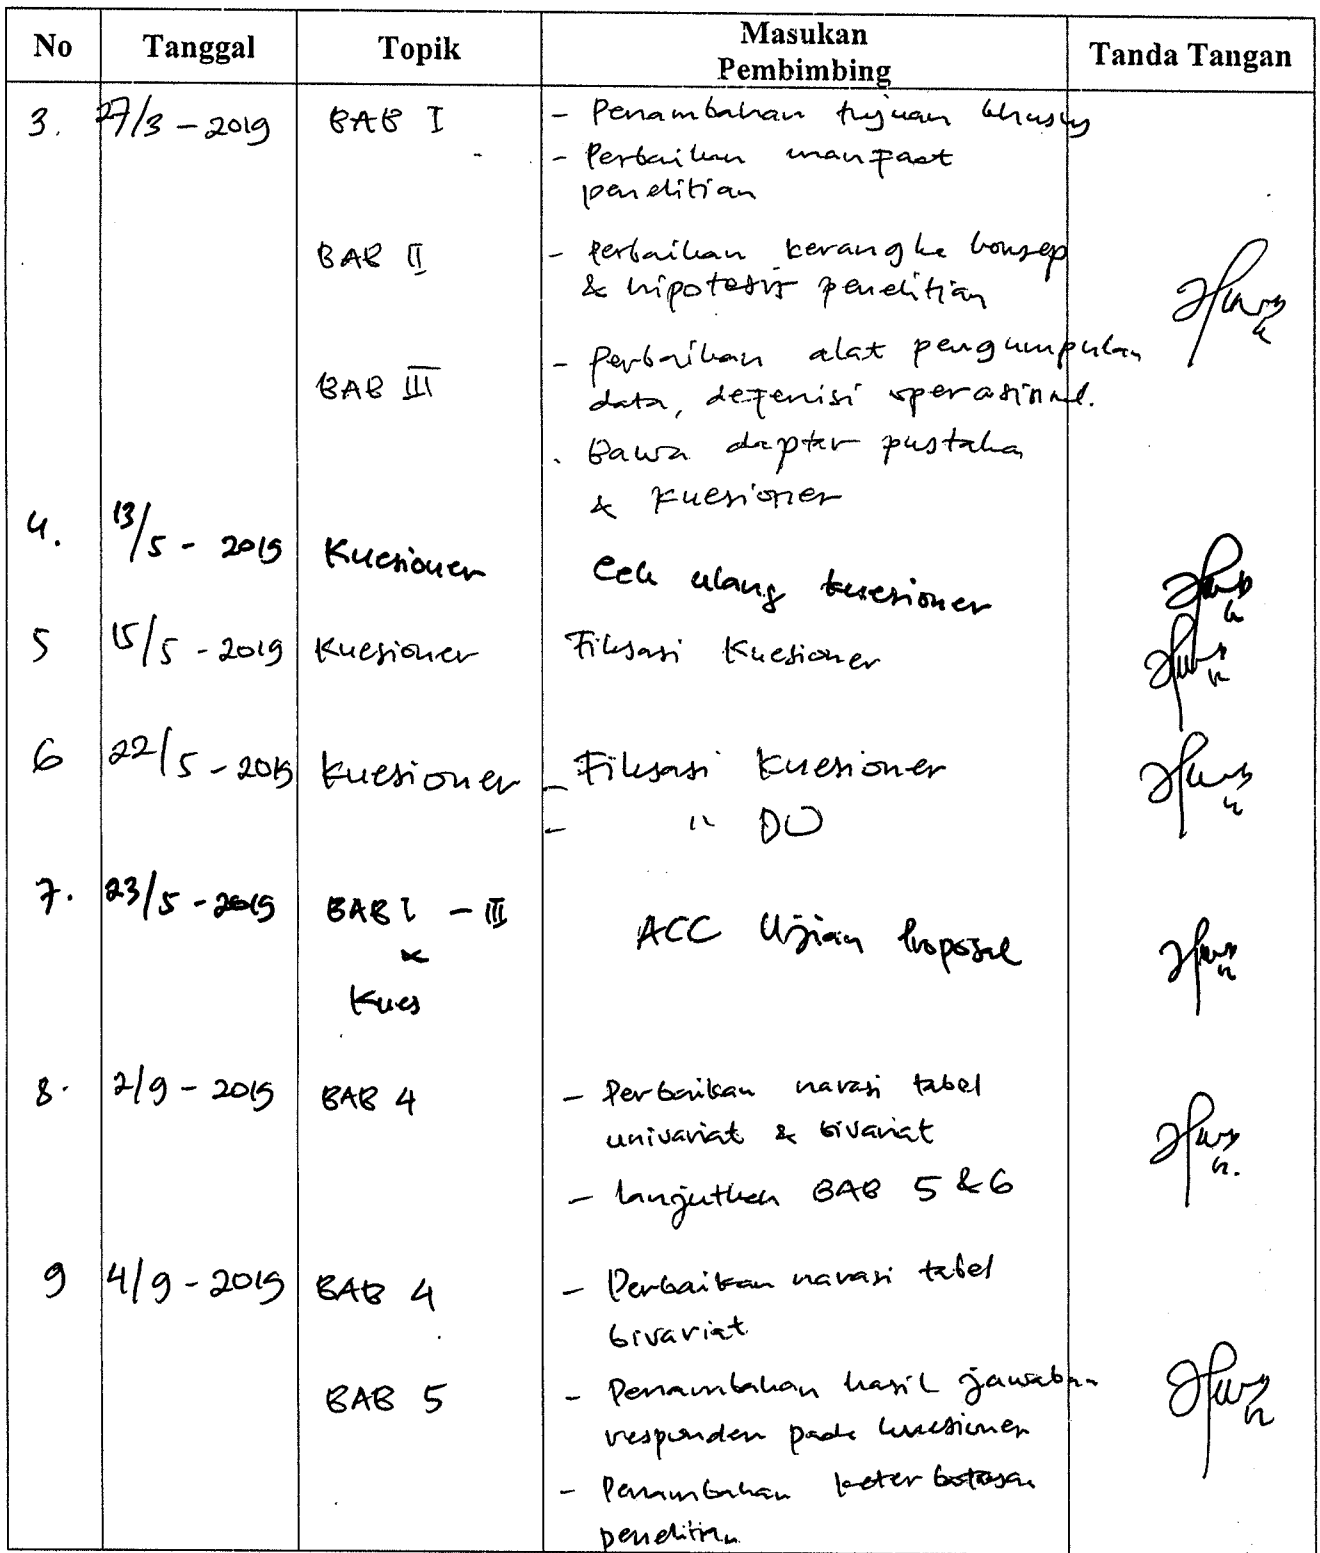 No Tanggal Topik Masukan Pembimbing Tanda Tangan
3. 27/3 - 2019 BAB I - Penambahan tujuan khusus
- Perbaikan manfaat
penelitian
BAB II - Perbaikan kerangka konsep
& hipotesis penelitian
BAB III - Perbaikan alat pengumpulan
data, defenisi operasional.
. Bawa daftar pustaka
& kuesioner
4. 13/5 - 2019 Kuesioner Cek ulang kuesioner
5 15/5 - 2019 Kuesioner Fiksasi Kuesioner
6 22/5 - 2019 Kuesioner - Fiksasi Kuesioner
- " DO
7. 23/5 - 2019 BAB I - III ACC Ujian Proposal
&
Kues
8. 2/9 - 2019 BAB 4 - Perbaikan narasi tabel
univariat & bivariat
- lanjutkan BAB 5 & 6
9 4/9 - 2019 BAB 4 - Perbaikan narasi tabel
bivariat
BAB 5 - Penambahan hasil jawaban
responden pada kuesioner
- Penambahan keterbatasan
penelitian